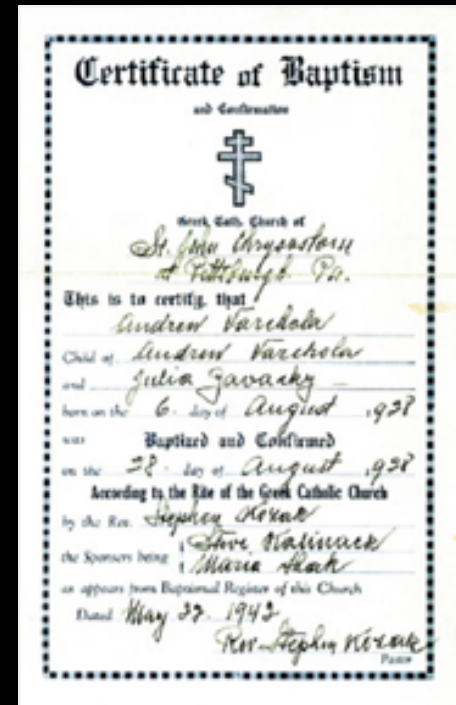 Certificate of Baptism
and Confirmation
Greek Cath. Church of
St. John Chrysostom
at Pittsburgh Pa.
This is to certify, that
Andrew Varchola
Child of Andrew Varchola
and Julia Zavacky
born on the 6. day of August 1928
was Baptized and Confirmed
on the 28. day of August 1928
According to the Rite of the Greek Catholic Church
by the Rev. Stephen Kozak
the Sponsers being Steve
Maria
as appears from Baptismal Register of this Church
Dated May 1942
Rev Stephen Kozak
Pastor